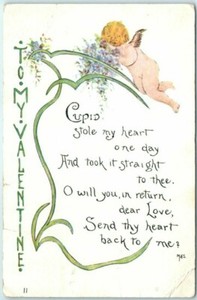 TO MY VALENTINE.
Cupid
stole my heart
one day
And took it straight
to thee.
O will you, in return,
dear Love,
Send thy heart
back to me?
11